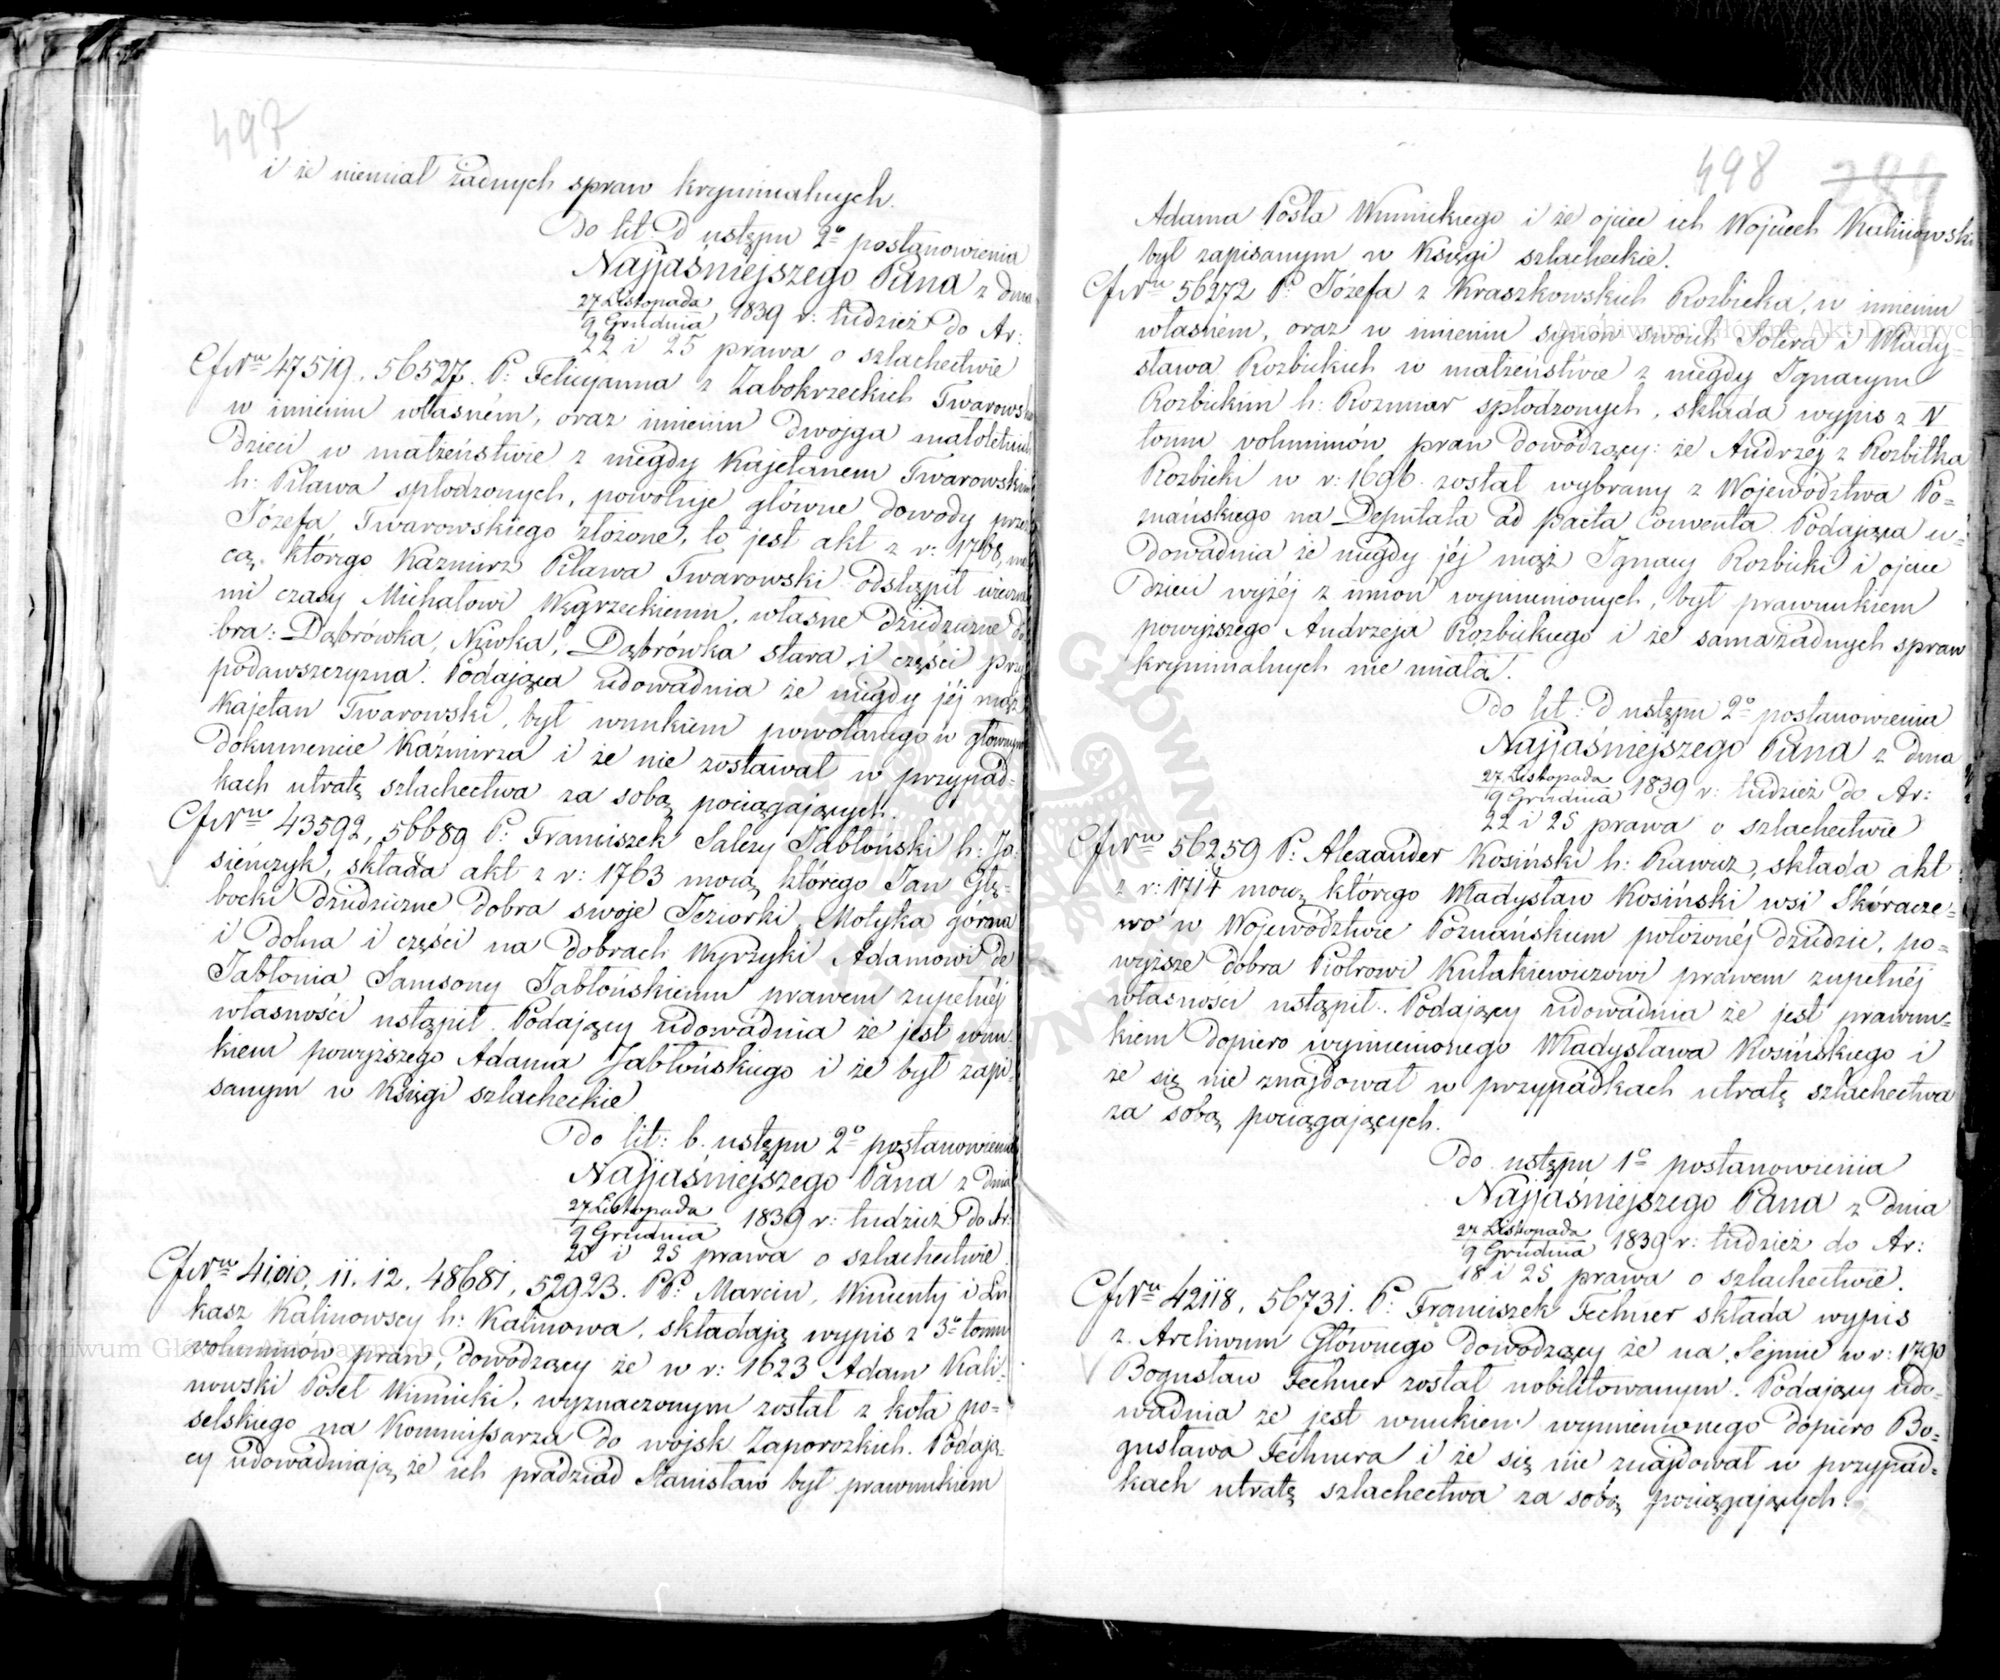 497
i że niemiał żadnych spraw kryminalnych.
Do lit. d ustępu 2º postanowienia
Najjaśniejszego Pana z dnia
27 Listopada
9 Grudnia 1839 r: tudzież do Ar:
22 i 25 prawa o szlachectwie
Cf Nru 47519, 56527. P: Felicyanna z Zabokrzeckich Twarowska
w imieniu własném, oraz imieniu dwojga małoletnich
dzieci w małżeństwie z niegdy Kajetanem Twarowskim
h: Pilawa spłodzonych, powołuje główne dowody przez
Józefa Twarowskiego złożone, to jest akt z r: 1768, mo
cą którego Kazmirz Pilawa Twarowski odstąpił wieczne
mi czasy Michałowi Węgrzeckiemu, własne dziedziczne do
bra: Dąbrówka, Niwka, Dąbrówka stara i części przy
podawszczyzna. Podająca udowadnia że niegdy jéj mąż
Kajetan Twarowski, był wnukiem powołanego w głównym
dokumencie Kaźmirza i że nie zostawał w przypad=
kach utratę szlachectwa za sobą pociągających.
Cf Nru 43592, 56689 P: Franciszek Salezy Jabłoński h: Ja
sieńczyk, składa akt z r: 1763 mocą którego Jan Głę=
bocki dziedziczne dobra swoje Jeziorki, Motyka górna
i dolna i części na dobrach Wyrzyki Adamowi de
Jabłonia Samsony Jabłońskiemu prawem zupełnéj
własności ustąpił. Podający udowadnia że jest wnu
kiem powyższego Adama Jabłońskiego i że był zapi
sanym w Księgi szlacheckie
Do lit: b. ustępu 2º postanowienia
Najjaśniejszego Pana z dnia
27 Listopada
9 Grudnia 1839 r: tudzież do Ar:
20 i 25 prawa o szlachectwie.
Cf Nru 41010, 11. 12. 48681, 52923. PP: Marcin, Wincenty i Łu
kasz Kalinowscy h: Kalinowa, składają wypis z 3º tomu
voluminów praw, dowodzący że w r: 1623 Adam Kali=
nowski Poseł Winnicki, wyznaczonym został z koła po=
selskiego na Kommissarza do wojsk Zaporozkich. Podają=
cy udowadniają że ich pradziad Stanisław był prawnukiem
498
Adama Posła Winnickiego i że ojciec ich Wojciech Kalinowski
był zapisanym w Księgi szlacheckie.
Cf Nru 56272 P: Józefa z Kraszkowskich Rozbicka, w imieniu
własném, oraz w imieniu synów swoich Sotera i Włady=
sława Rozbickich w małżeństwie z niegdy Ignacym
Rozbickim h: Rozmiar spłodzonych, składa wypis z V
tomu voluminów praw dowodzący: że Andrzéj z Rozbitka
Rozbicki w r: 1696. został wybrany z Województwa Po=
znańskiego na Deputata ad pacta Conventa. Podająca u=
dowadnia że niegdy jéj mąż Ignacy Rozbicki i ojciec
dzieci wyżéj z imion wymienionych, był prawnukiem
powyższego Andrzeja Rozbickiego i że sama żadnych spraw
kryminalnych nie miała.
Do lit: d ustępu 2º postanowienia
Najjaśniejszego Pana z dnia
27 Listopada
9 Grudnia 1839 r: tudzież do Ar:
22 i 25 prawa o szlachectwie
Cf Nru 56259 P: Alexander Kosiński h: Rawicz, składa akt
z r: 1714 mocą którego Władysław Kosiński wsi Skóracze=
wo w Województwie Poznańskiem położonéj dziedzic, po=
wyższe dobra Piotrowi Kułakiewiczowi prawem zupełnéj
własności ustąpił. Podający udowadnia że jest prawnu=
kiem dopiero wymienionego Władysława Kosińskiego i
że się nie znajdował w przypadkach utratę szlachectwa
za sobą pociągających.
Do ustępu 1º postanowienia
Najjaśniejszego Pana z dnia
27 Listopada
9 Grudnia 1839 r: tudzież do Ar:
18 i 25 prawa o szlachectwie.
Cf Nru 42118, 56731. P: Franciszek Fechner składa wypis
z Archiwum Głównego dowodzący że na Sejmie w r: 1790
Bogusław Fechner został nobilitowanym. Podający udo=
wadnia że jest wnukiem wymienionego dopiero Bo=
gusława Fechnera i że się nie znajdował w przypad=
kach utratę szlachectwa za sobą pociągających.
Archiwum Główne Akt Dawnych
Archiwum Główne Akt Dawnych